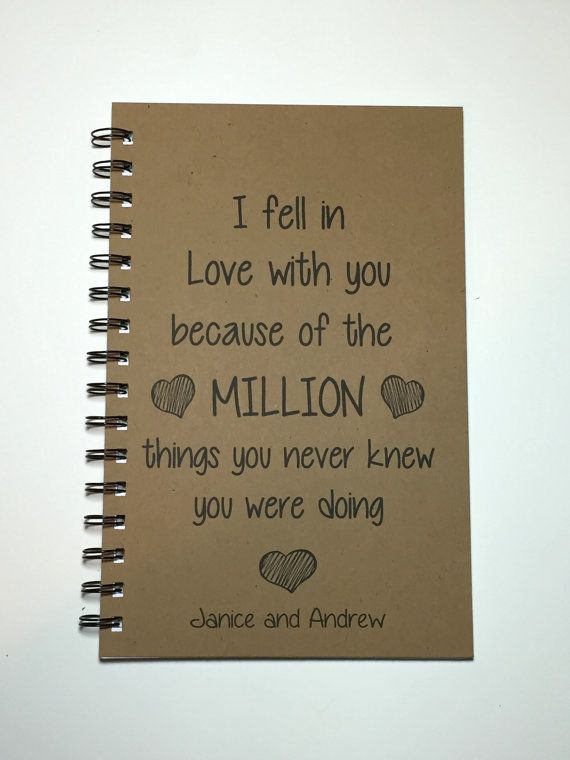 I fell in
Love with you
because of the
MILLION
things you never knew
you were doing
Janice and Andrew